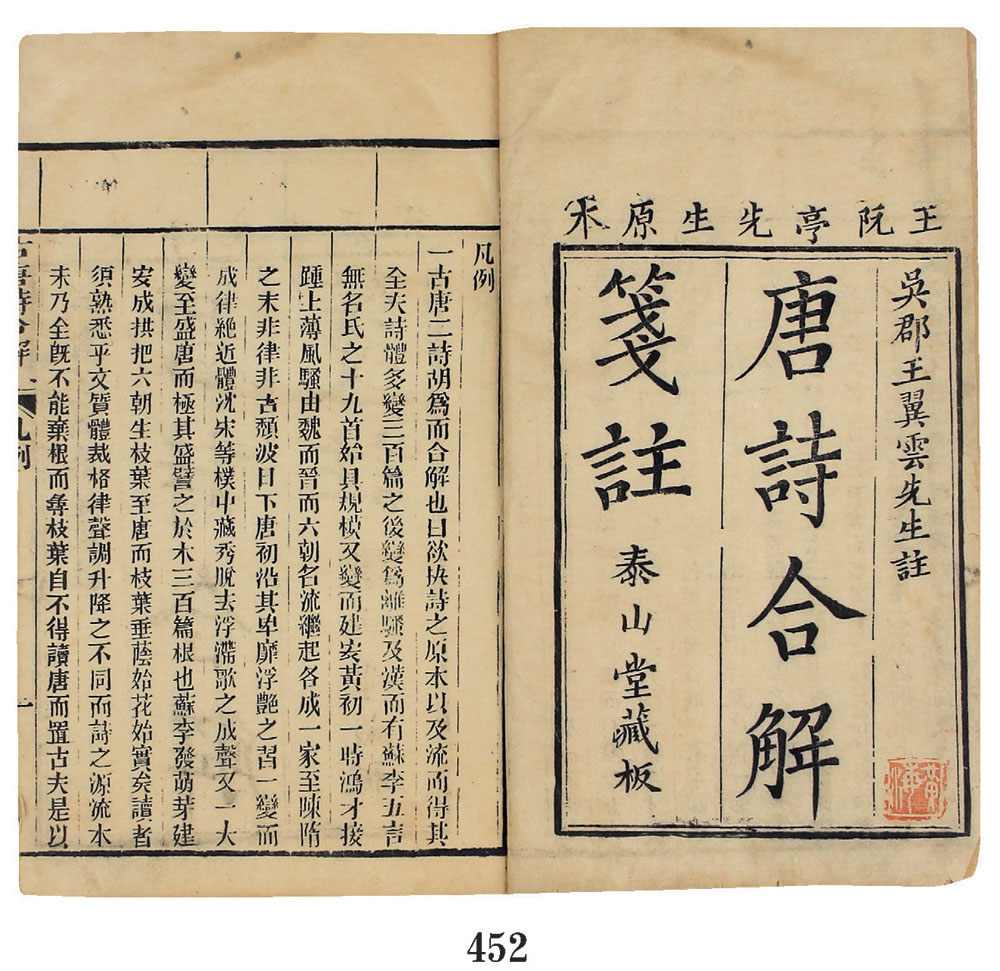 王阮亭先生原本
吳郡王翼雲先生註
唐詩合解
箋註
泰山堂藏板
凡例
一古唐二詩胡爲而合解也曰欲抉詩之原本以及流而得其
全夫詩體多變三百篇之後變爲離騷及漢而有蘇李五言
無名氏之十九首始具規模又變而建安黃初一時鴻才接
踵上薄風騷由魏而晉而六朝名流繼起各成一家至陳隋
之末非律非古頹波日下唐初沿其卑靡浮艷之習一變而
成律絶近體沈宋等樸中藏秀脫去浮滯歌之成聲又一大
變至盛唐而極其盛譬之於木三百篇根也蘇李發萌芽建
安成拱把六朝生枝葉至唐而枝葉垂蔭始花始實矣讀者
須熟悉乎文質體裁格律聲調升降之不同而詩之源流本
未乃全旣不能棄根而尋枝葉自不得讀唐而置古夫是以
古唐詩合解 凡例 一
452